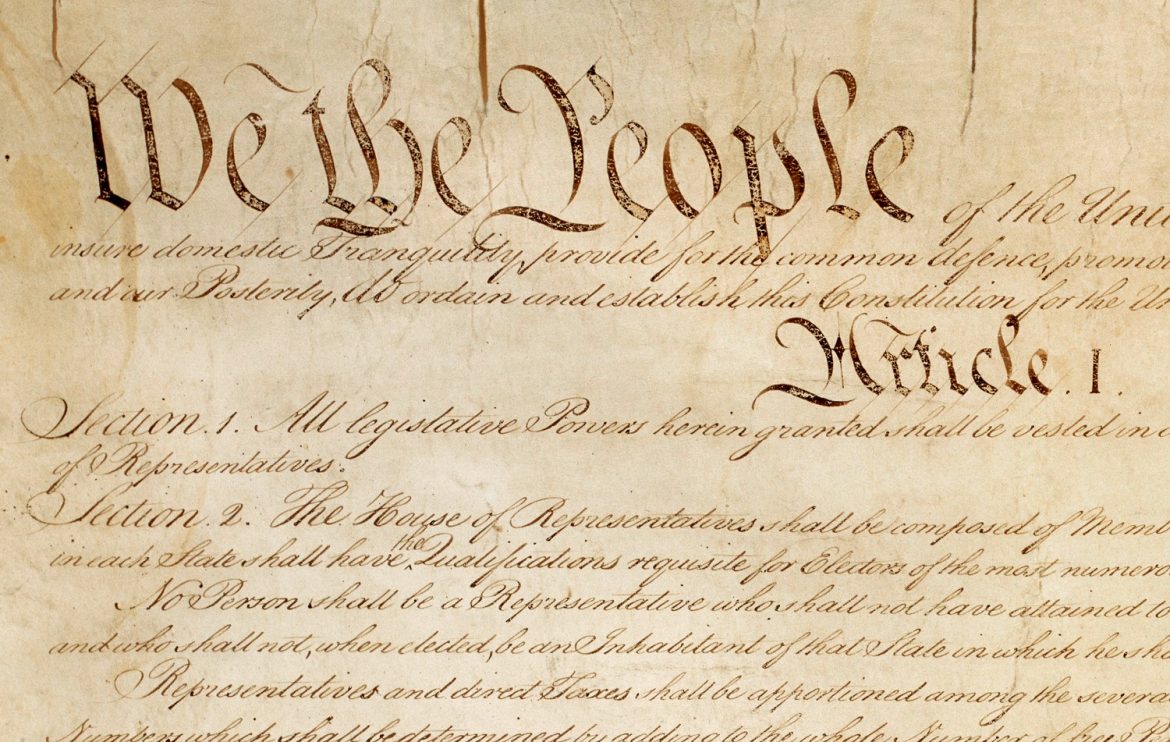 We the People of the Uni
insure domestic Tranquility, provide for the common defence, promo
and our Posterity, do ordain and establish this Constitution for the Un
Article. I.
Section. 1. All legislative Powers herein granted shall be vested in a
of Representatives.
Section. 2. The House of Representatives shall be composed of Memb
in each State shall have the Qualifications requisite for Electors of the most numero
No Person shall be a Representative who shall not have attained to
and who shall not, when elected, be an Inhabitant of that State in which he sha
Representatives and direct Taxes shall be apportioned among the severa
Numbers which shall be determined by adding to the whole Number of free Per